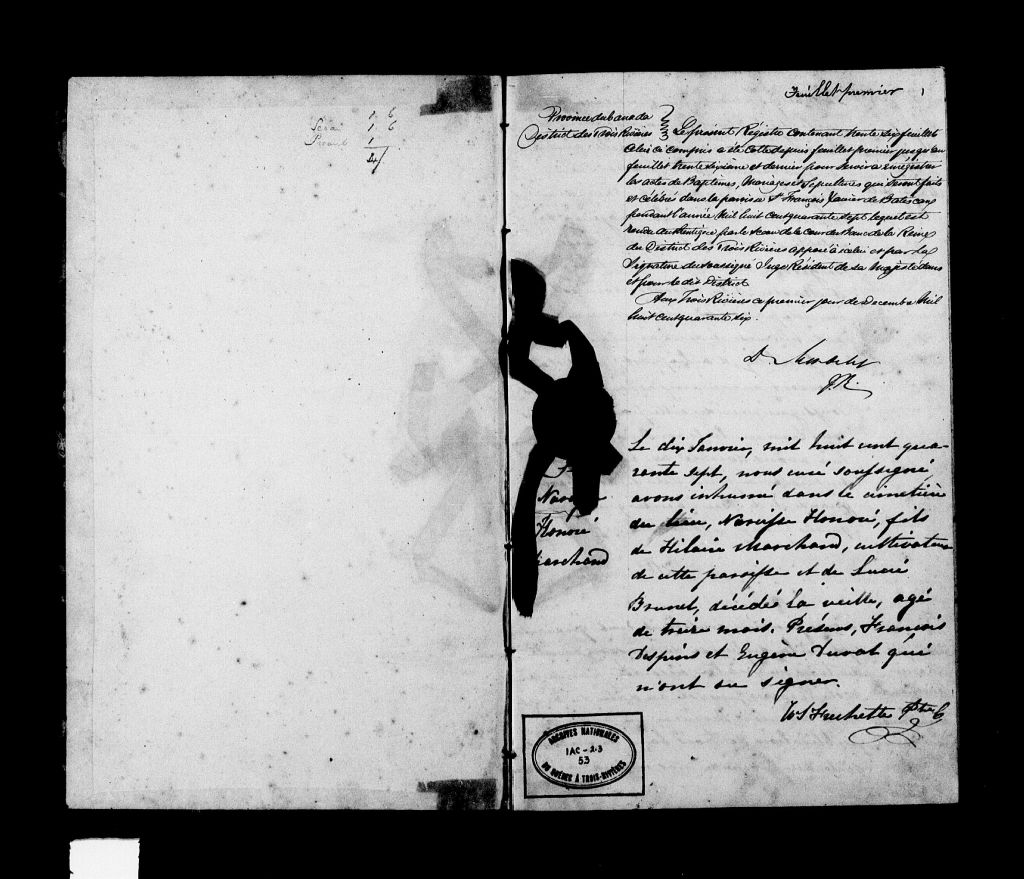 Feuillet premier 1
Province du Canada
District des Trois Rivières
Le présent Régistre contenant trente six feuillets
celui ci compris a été cotté depuis feuillet premier jusqu'au
feuillet trente sixième et dernier pour servir a enrégistrer
les actes de Baptêmes, Mariages et Sepultures qui seront faits
et célébrés dans la paroisse St François Xavier de Batiscan
pendant l'année Mil huit cent quarante sept lequel est
rendu authentique par le sceau de la cour du Banc de la Reine
du District des Trois Rivières apposé à icelui et par la
Signature du soussigné Juge Résident de sa Majesté dans
et pour le dit District
Aux Trois Rivières ce premier jour de Decembre Mil
huit cent quarante six.
Le dix Janvier, mil huit cent qua-
rante sept, nous curé soussigné
avons inhumé dans le cimetière
du lieu, Narcisse Honoré, fils
de Hilaire Marchand, cultivateur
de cette paroisse et de Lucie
Brunet, décédé la veille, agé
de treize mois. Présens, François
Despins et Eugène Duval qui
n'ont su signer.
Frechette Ptre
Honoré
Marchand
1 6
1 6
1
ARCHIVES NATIONALES
IAC-2-3
53
DU QUÉBEC À TROIS-RIVIÈRES